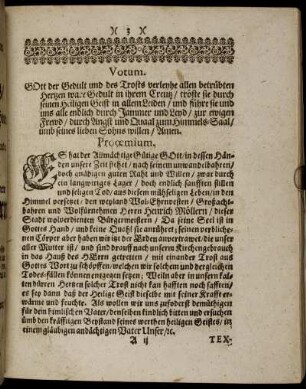 )( 3 )(
Votum.
GOtt der Gedult und des Trosts verleyhe allen betrübten
Hertzen wahre Gedult in ihrem Creutz / tröste sie durch
seinen Heiligen Geist in allem Leiden / und führt sie und
uns alle endlich durch Jammer und Leyd / zur ewigen
Freud / durch Angst und Quaal zum Himmels-Saal /
umb seines lieben Sohns willen / Amen.
Prooemium.
ES hat der Allmächtige Gütige GOtt / in dessen Hän-
den unsere Zeit stehet / nach seinem unwandelbahren /
doch gnädigen guten Raht und Willen / zwar durch
ein langwiriges Lager / doch endlich sanfften stillen
und seligen Tod / aus diesem mühseligen Leben / in den
Himmel versetzet / den weyland Wol-Ehrnvesten / Großacht-
bahren und Wolfürnehmen Herrn Henrich Möllern / dieser
Stadt wolverdienten Bürgermeistern / Da seine Seel ist in
Gottes Hand / und keine Quahl sie anrühret; seinen verbliche-
nen Cörper aber haben wir itzt der Erden anvertrawet / die unser
aller Mutter ist / und sind drauff nach unserm Kirchengebrauch
in das Hauß des HErrn getretten / mit einander Trost aus
Gottes Wort zu schöpffen / welchen wir solchem und dergleichen
Todes-fällen können entgegen setzen. Weiln aber in unsern kal-
ten dürren Hertzen solcher Trost nicht kan hafften noch safften /
es sey dann daß der Heilige Geist dieselbe mit seiner Krafft er-
wärme und feuchte. Als wollen wir uns zuforderst demütigen
für den himlischen Vater / denselben kindlich bitten und ersuchen
umb den kräfftigen Beystand seines werthen heiligen Geistes / in
einem gläubigen andächtigen Vater Unser / ꝛc.
A ij TEX-